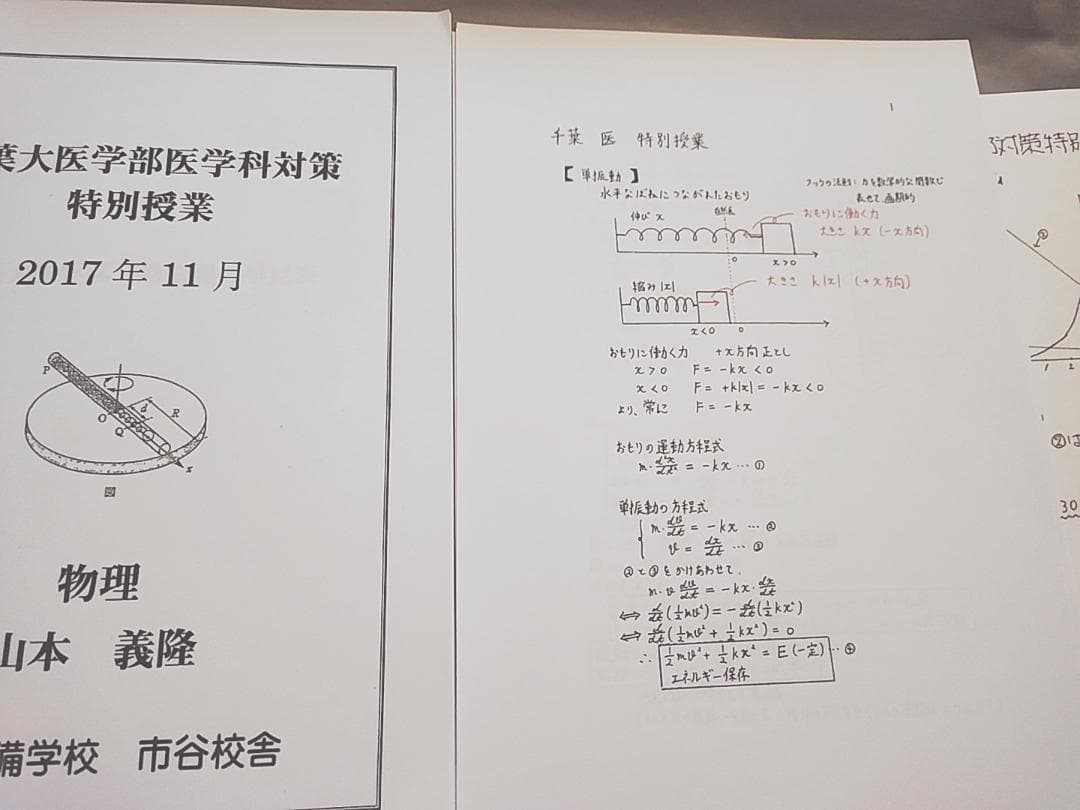 葉大医学部医学科対策
特別授業
2017年11月
P
O
Q
d
R
x
図
物理
山本 義隆
備学校 市谷校舎
1
千葉 医 特別授業
【単振動】
水平なばねにつながれたおもり
フックの法則: 力を数学的な関数で
表せて画期的
伸び x
自然長
おもりに働く力
大きさ kx (-x方向)
0
x>0
縮み |x|
大きさ k|x| (+x方向)
x<0
0
おもりに働く力 +x方向正とし
x>0 F = -kx < 0
x<0 F = +k|x| = -kx < 0
より、常に F = -kx
おもりの運動方程式
m・d²x/dt² = -kx … ①
単振動の方程式
m・dv/dt = -kx … ②
v = dx/dt … ③
②と③をかけあわせて、
m・v dv/dt = -kx・dx/dt
⇔ d/dt(½mv²) = -d/dt(½kx²)
⇔ d/dt(½mv² + ½kx²) = 0
∴ ½mv² + ½kx² = E (一定) … ④
エネルギー保存
対策特別
②
1 2
②は
30